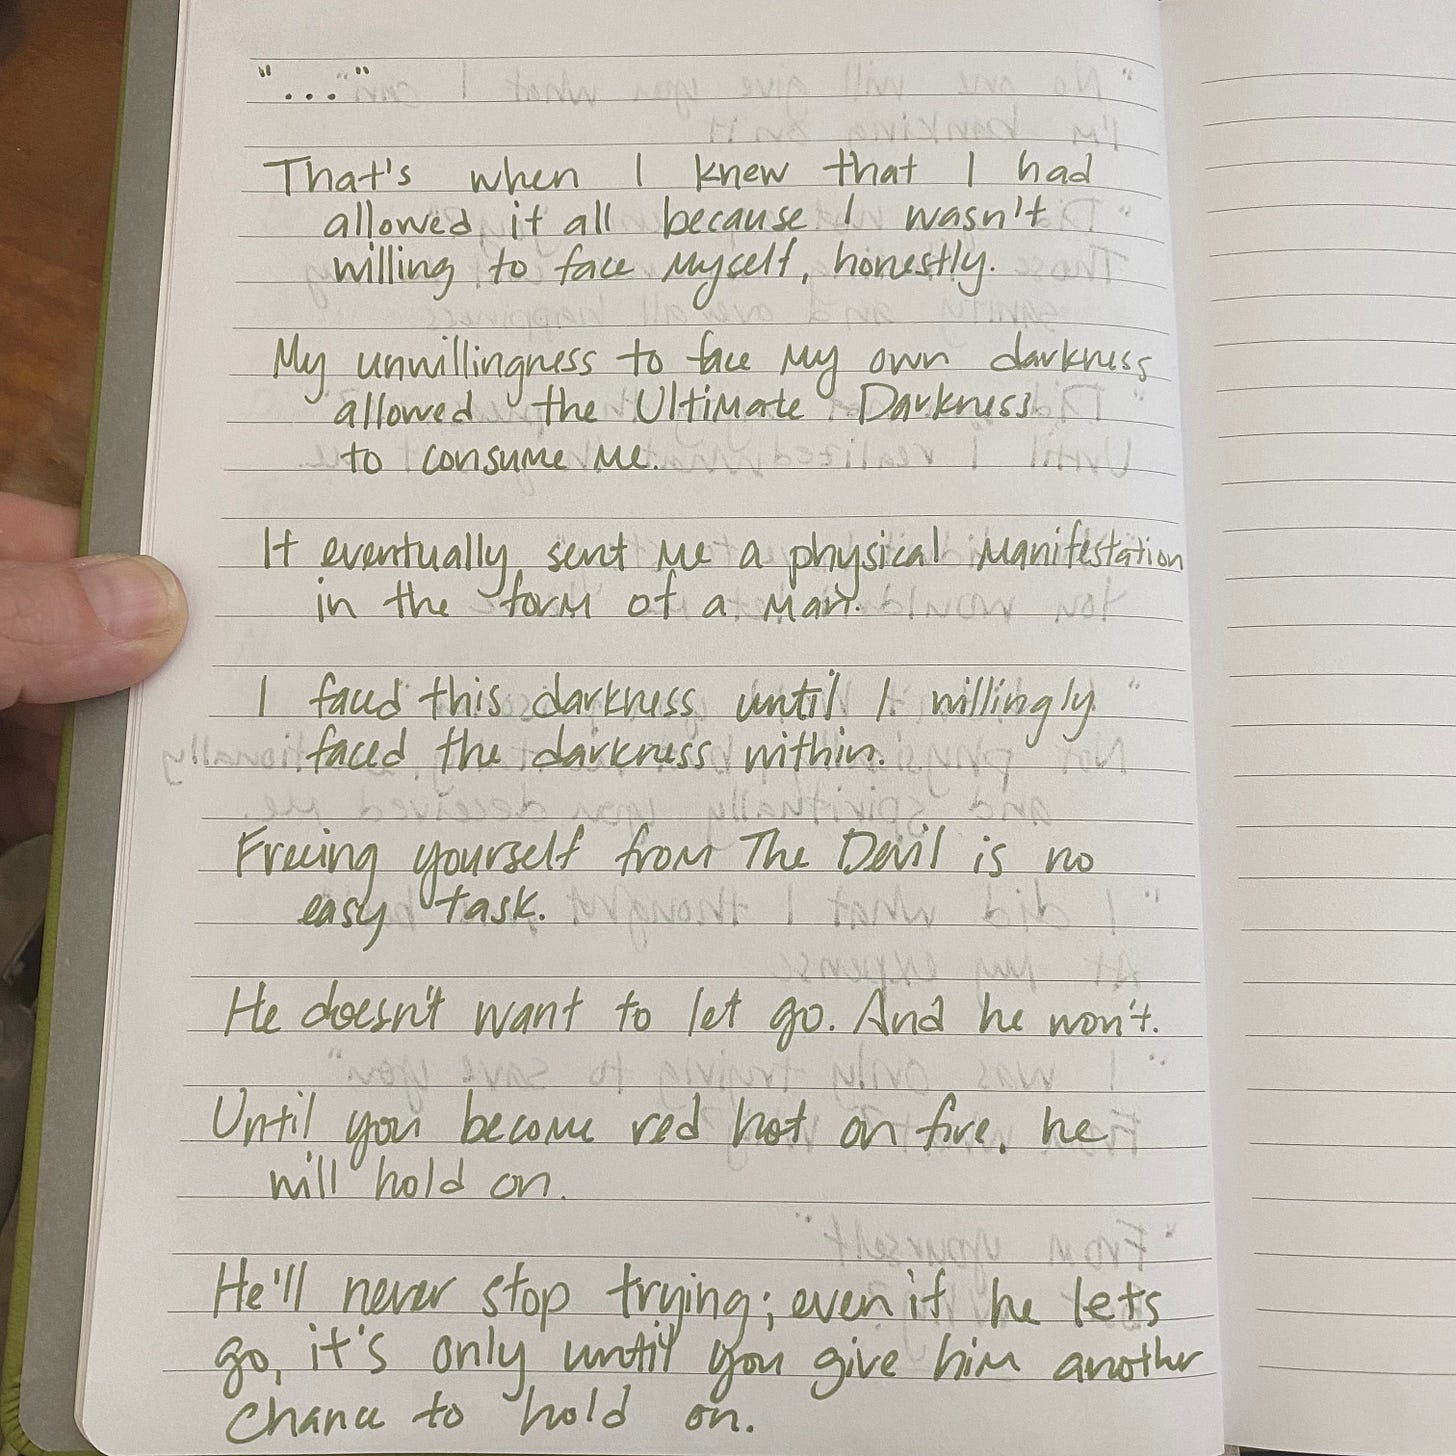 "..."
That's when I knew that I had
allowed it all because I wasn't
willing to face myself, honestly.
My unwillingness to face my own darkness
allowed the Ultimate Darkness
to consume me.
It eventually sent me a physical manifestation
in the form of a man.
I faced this darkness until I willingly
faced the darkness within.
Freeing yourself from The Devil is no
easy task.
He doesn't want to let go. And he won't.
Until you become red hot on fire, he
will hold on.
He'll never stop trying; even if he lets
go, it's only until you give him another
chance to hold on.